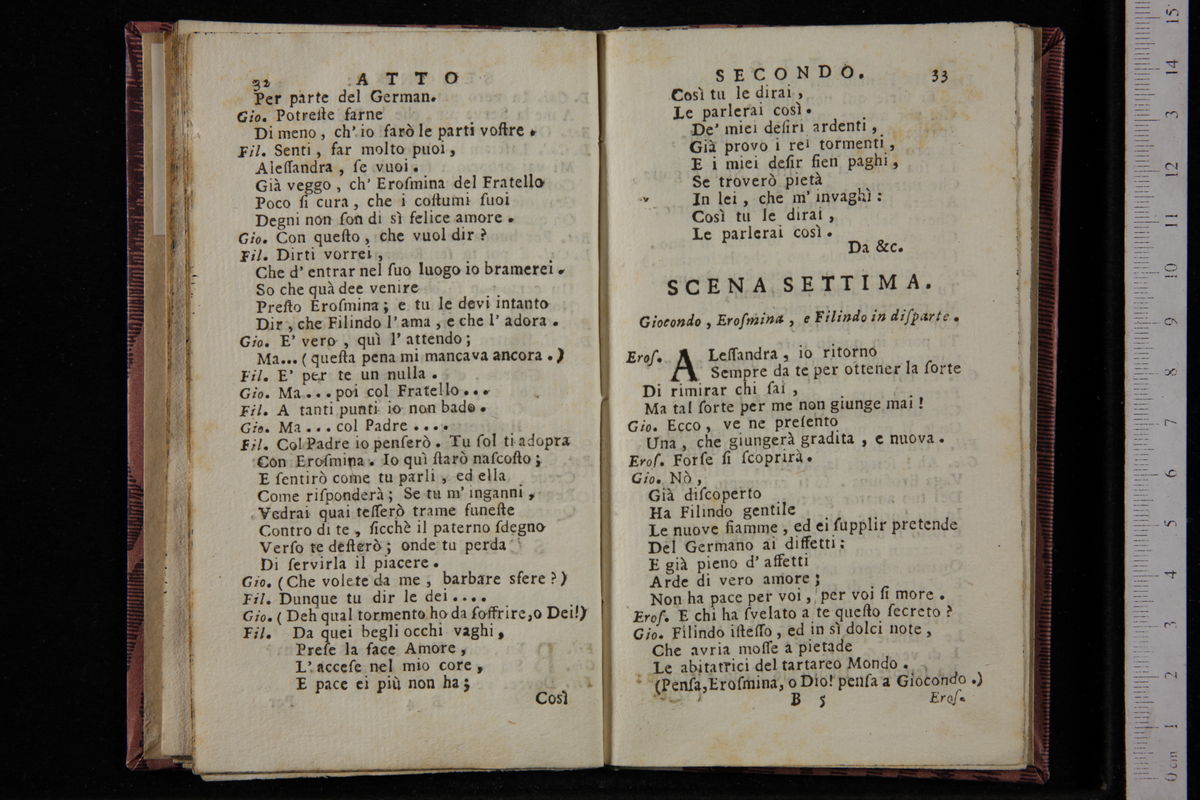 32 ATTO
Per parte del German.
Gio. Potreſte farne
Di meno, ch' io farò le parti voſtre.
Fil. Senti, far molto puoi,
Aleſſandra, ſe vuoi.
Già veggo, ch' Eroſmina del Fratello
Poco ſi cura, che i coſtumi ſuoi
Degni non ſon di sì felice amore.
Gio. Con queſto, che vuol dir?
Fil. Dirti vorrei,
Che d' entrar nel ſuo luogo io bramerei.
So che quà dee venire
Preſto Eroſmina; e tu le devi intanto
Dir, che Filindo l' ama, e che l' adora.
Gio. E' vero, quì l' attendo;
Ma... (queſta pena mi mancava ancora.)
Fil. E' per te un nulla.
Gio. Ma... poi col Fratello...
Fil. A tanti punti io non bado.
Gio. Ma... col Padre....
Fil. Col Padre io penſerò. Tu ſol ti adopra
Con Eroſmina. Io quì ſtarò naſcoſto;
E ſentirò come tu parli, ed ella
Come riſponderà; Se tu m' inganni,
Vedrai quai teſſerò trame funeſte
Contro di te, ſicchè il paterno ſdegno
Verſo te deſterò; onde tu perda
Di ſervirla il piacere.
Gio. (Che volete da me, barbare sfere?)
Fil. Dunque tu dir le dei....
Gio. (Deh qual tormento ho da ſoffrire, o Dei!)
Fil. Da quei begli occhi vaghi,
Preſe la face Amore,
L' acceſe nel mio core,
E pace ei più non ha;
Così
SECONDO. 33
Così tu le dirai,
Le parlerai così.
De' miei deſiri ardenti,
Già provo i rei tormenti,
E i miei deſir ſien paghi,
Se troverò pietà
In lei, che m' invaghì:
Così tu le dirai,
Le parlerai così.
Da &c.
SCENA SETTIMA.
Giocondo, Eroſmina, e Filindo in diſparte.
Eroſ. ALeſſandra, io ritorno
Sempre da te per ottener la ſorte
Di rimirar chi ſai,
Ma tal ſorte per me non giunge mai!
Gio. Ecco, ve ne preſento
Una, che giungerà gradita, e nuova.
Eroſ. Forſe ſi ſcoprirà.
Gio. Nò,
Già diſcoperto
Ha Filindo gentile
Le nuove fiamme, ed ei ſupplir pretende
Del Germano ai diffetti:
E già pieno d' affetti
Arde di vero amore;
Non ha pace per voi, per voi ſi more.
Eroſ. E chi ha ſvelato a te queſto ſecreto?
Gio. Filindo iſteſſo, ed in sì dolci note,
Che avria moſſe a pietade
Le abitatrici del tartareo Mondo.
(Penſa, Eroſmina, o Dio! penſa a Giocondo.)
B 5 Eroſ.
0 cm 1 2 3 4 5 6 7 8 9 10 11 12 3 14 15